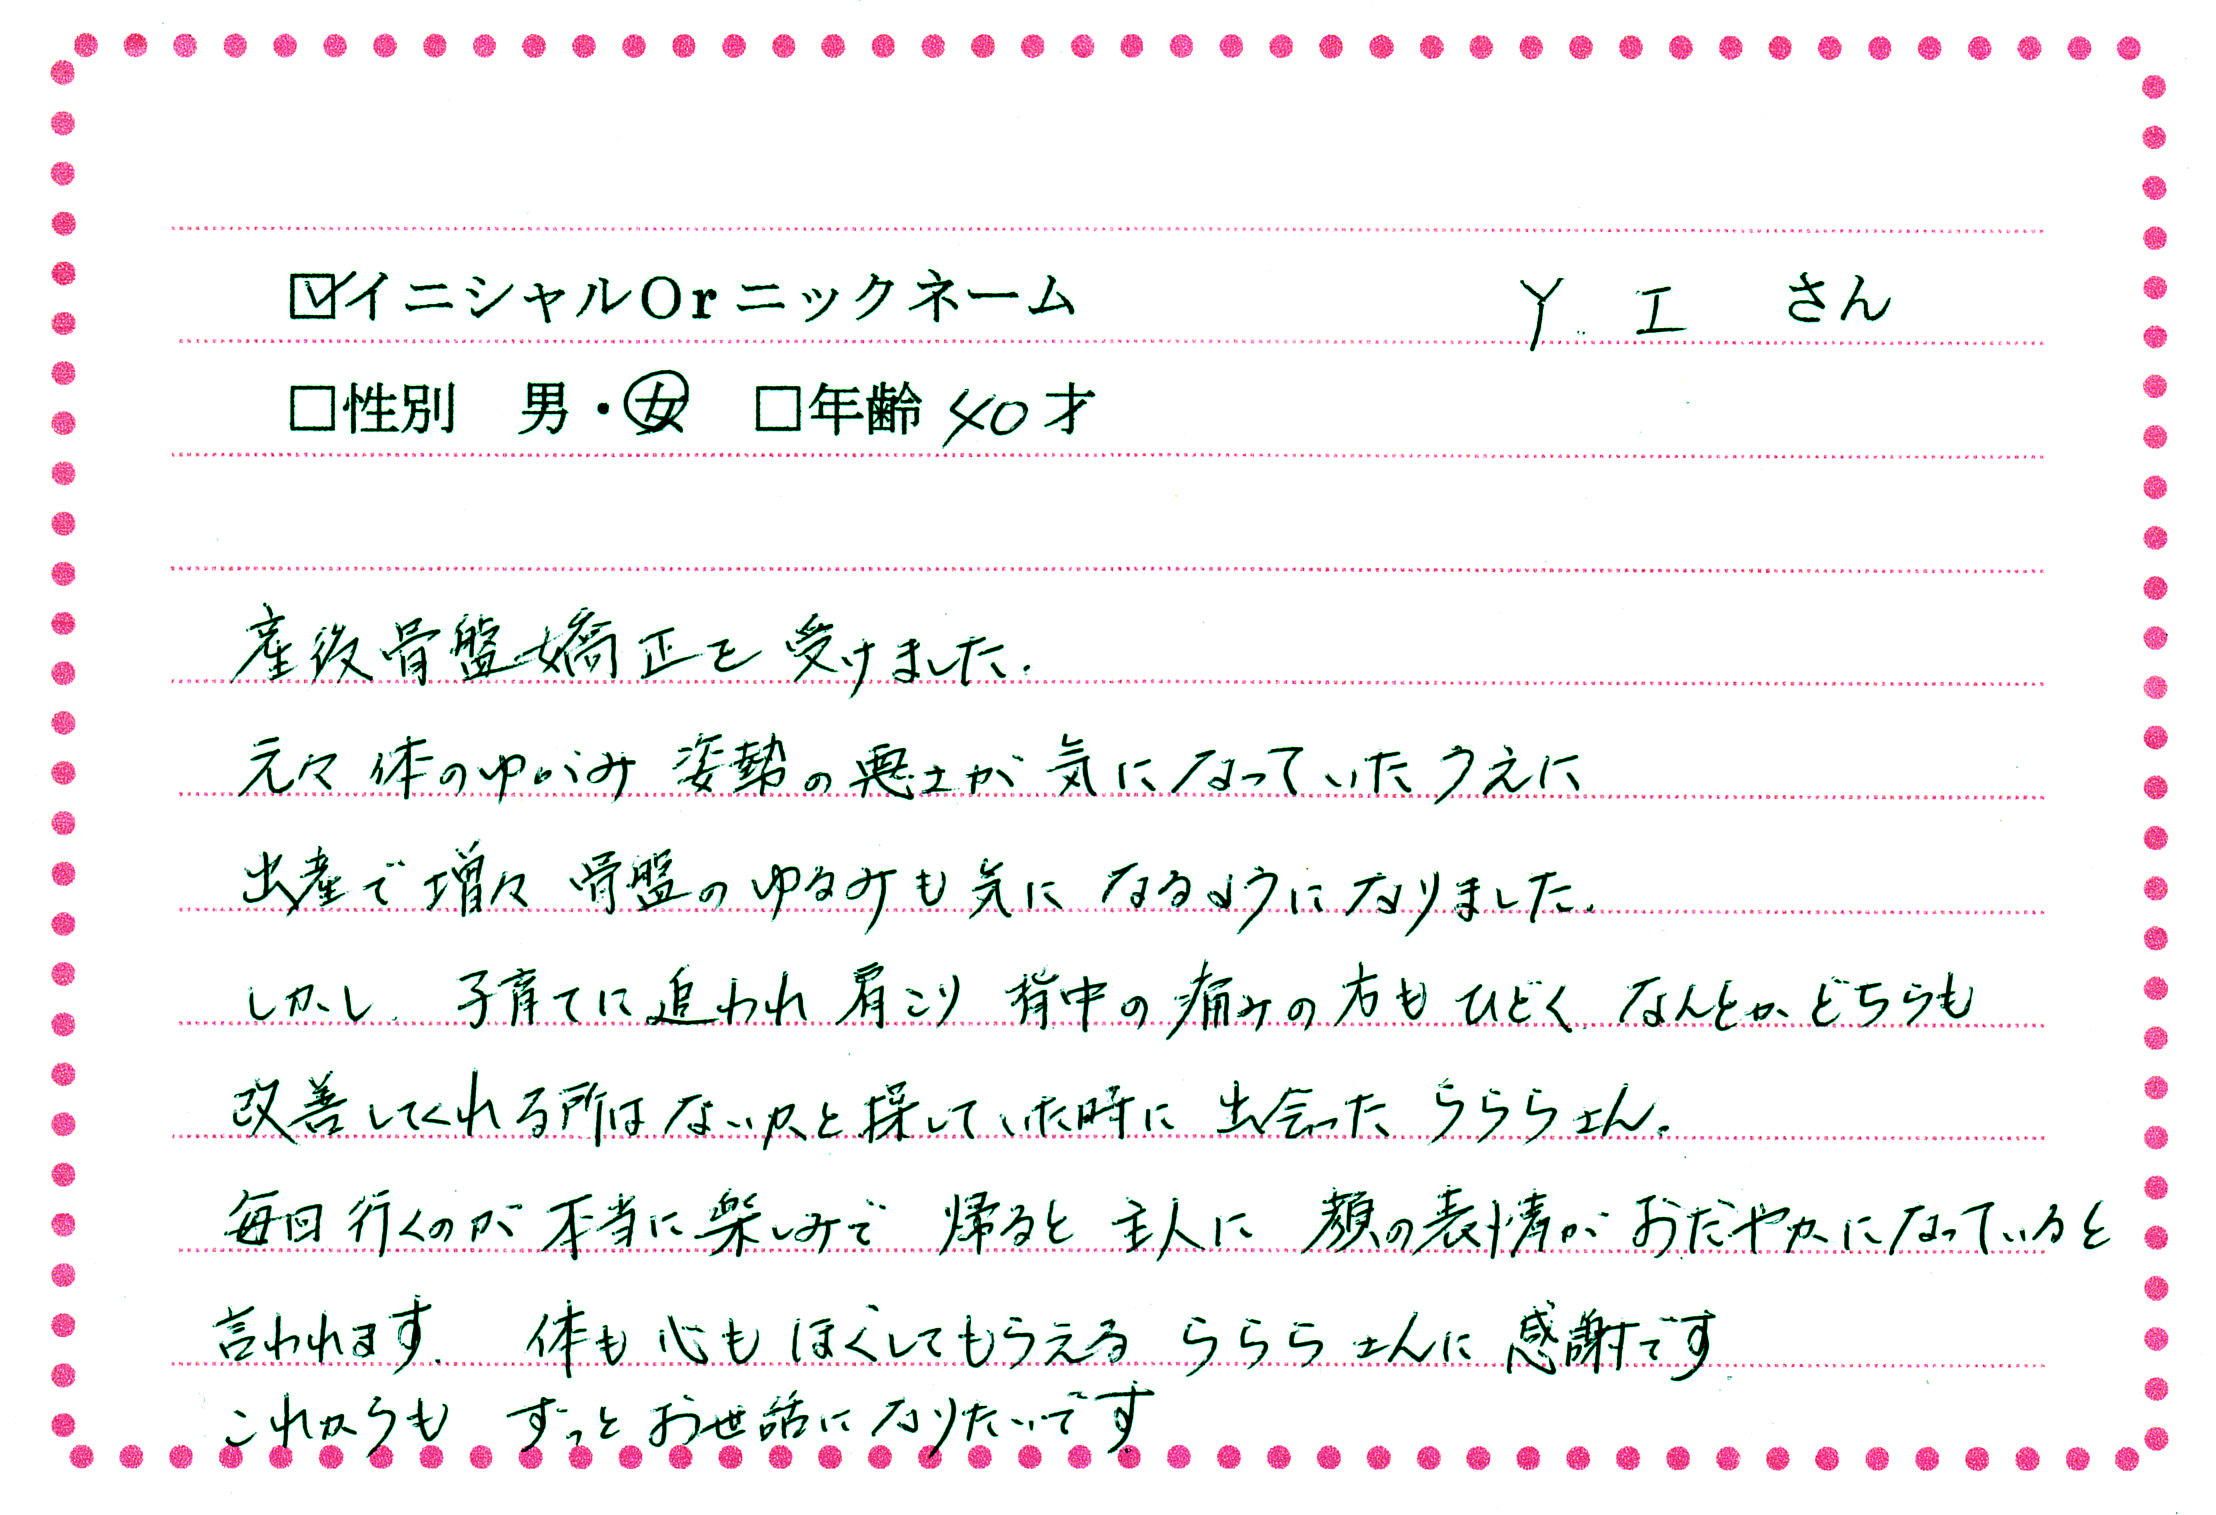 ☑イニシャルOrニックネーム Y. I さん
□性別 男・女 □年齢 40才
産後骨盤矯正を受けました.
元々体のゆがみ 姿勢の悪さが気になっていたうえに
出産で増々骨盤のゆるみも気になるようになりました.
しかし. 子育てに追われ肩こり 背中の痛みの方もひどく なんとかどちらも
改善してくれる所はないかと探していた時に 出会った らららさん.
毎回行くのが本当に楽しみで 帰ると 主人に 顔の表情がおだやかになっていると
言われます. 体も心もほぐしてもらえる らららさんに 感謝です
これからも ずっとお世話になりたいです